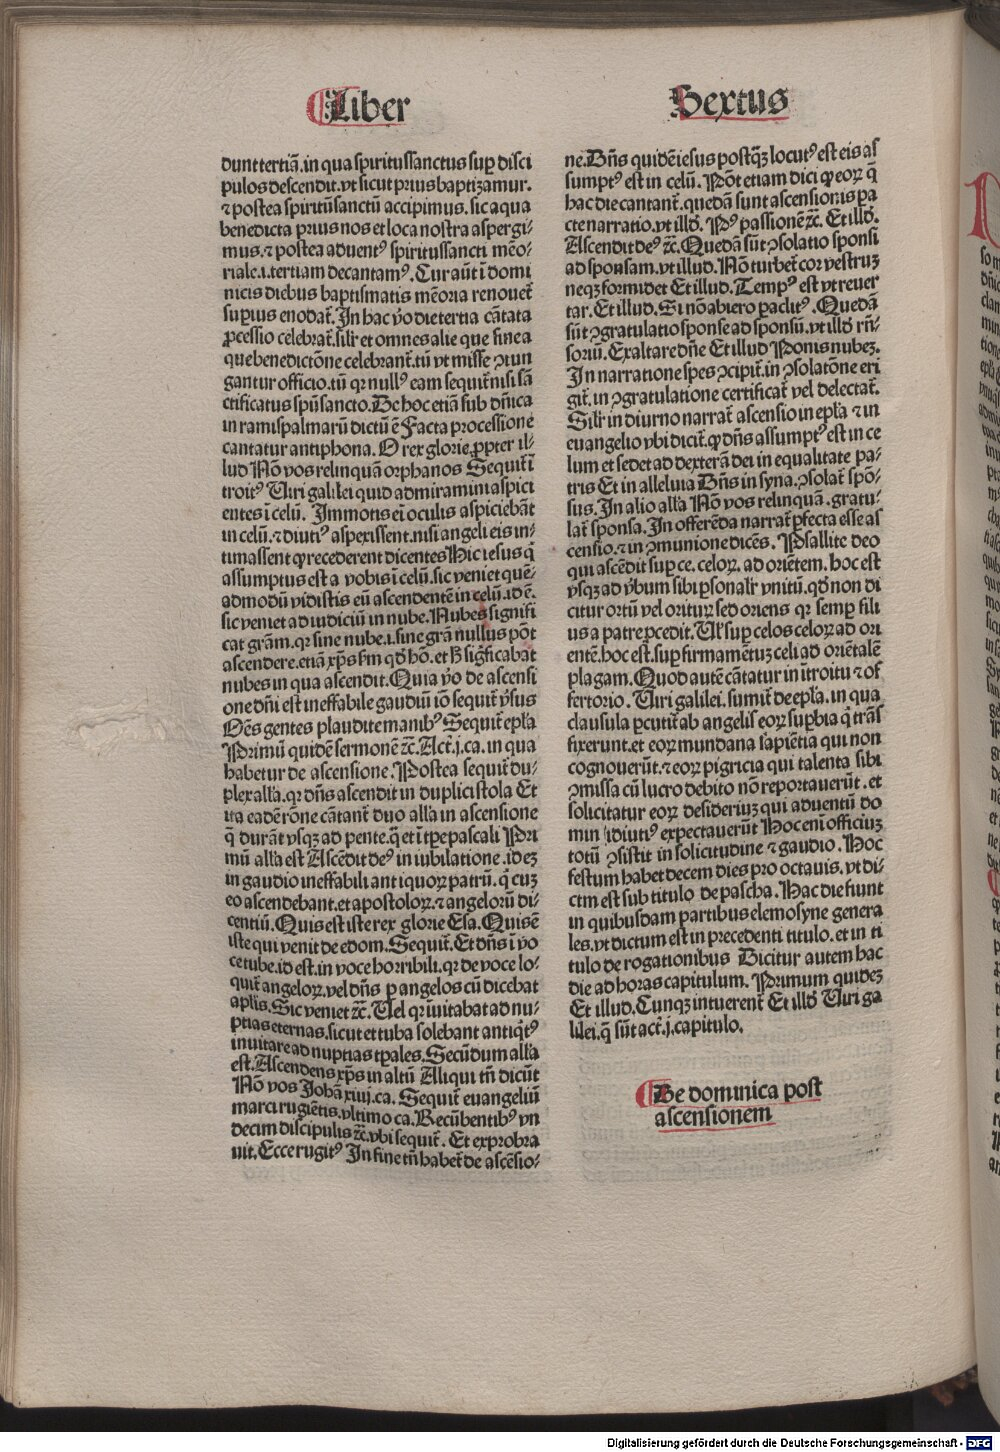 Liber
Sextus
dunt tertiā. in qua spiritussanctus sup̲ disci
pulos descendit. vt sicut prius baptizamur.
⁊ postea spiritū sanctū accipimus. sic aqua
benedicta prius nos et loca nostra aspergi⸗
mus. ⁊ postea aduentꝰ spiritussancti mēo⸗
riale. i. tertiam decantamꝰ. Cur aūt ī domi
nicis diebus baptismatis mēoria renouet̄
sup̲ius enodat̄. In hac v̊o die tertia cātata
ꝓcessio celebrat̄. silr̄ et omnes alie que sine a
que benedictōne celebrant̄. tū vt misse ꝯiun
gantur officio. tū qr nullꝰ eam sequit̄ nisi sā
ctificatus spū sancto. De hoc etiā sub dn̄ica
in ramispalmarū dictū ē Facta processione
cantatur antiphona. O rex glorie. ꝓpter il⸗
lud Nō vos relinquā orphanos Sequit̄ ī
troitꝰ Viri galilei quid admiramini aspici
entes ī celū. Immotis ei oculis aspiciebāt
in celū. ⁊ diutiꝰ aspexissent. nisi angeli eis in⸗
timassent ꝙ recederent dicentes Hic iesus q̄
assumptus est a vobis ī celū. sic veniet quē⸗
admodū vidistis eū ascendentē in celū. id ē.
sic veniet ad iudiciū in nube. Nubes signifi
cat grām. qr sine nube. i. sine grā nullus pōt
ascendere. etiā xp̄s s̄m qd̓ hō. et ɧ sig̓ficabat
nubes in qua ascendit. Quia v̊o de ascensi
one dn̄i est ineffabile gaudiū iō sequit̄ v̓sus
Oēs gentes plaudite manibꝰ Sequit̄ epl̓a
Primū quidē sermonē ⁊c̄. Act̄. j. ca. in qua
habetur de ascensione. Postea sequit̄ du⸗
plex all̓a. qr dn̄s ascendit in duplici stola Et
ita eadē rōne cātant̄ duo all̓a in ascensione
q̄ durāt vsqꝫ ad pente. q̄ et ī tp̄e pascali Pri
mū all̓a est Ascēdit deꝰ in iubilatione. id eꝫ
in gaudio ineffabili antiquoꝝ patrū. q̄ cuꝫ
eo ascendebant. et apostoloꝝ. ⁊ angeloꝝ di⸗
centiū. Quis est iste rex glorie Esa. Quis ē
iste qui venit de edom. Sequit̄. Et dn̄s ī vo
ce tube. id est. in voce horribili. qr de voce lo⸗
quit̄ angeloꝝ. vel dn̄s p̲ angelos cū dicebat
apl̓is. Sic veniet ⁊c̄. Vel qr īuitabat ad nu⸗
ptias eternas. sicut et tuba solebant antiq̄tꝰ
inuitare ad nuptias tp̲ales. Secūdum all̓a
est. Ascendens xp̄s in altū Aliqui tn̄ dicūt
Nō vos Johā xiiij. ca. Sequit̄ euangeliū
marci rugiētis. vltimo ca. Recūbentibꝰ vn
decim discipulis ⁊c̄. vbi sequit̄. Et exprobra
uit. Ecce rugitꝰ In fine tn̄ habet̄ de ascēsio⸗
ne. Dn̄s quidē iesus postqꝫ̄ locutꝰ est eis as
sumptꝰ est in celū. Nōt etiam dici ꝙ eoꝝ q̄
hac die cantant̄. quedā sunt ascensionis pa
cte narratio. vt ill̓d. Pꝰ passionē ⁊c̄. Et ill̓d.
Ascendit deꝰ ⁊c̄. Quedā sūt ꝯsolatio sponsi
ad sponsam. vt illud. Nō turbet̄ cor vestruꝫ
neqꝫ formidet Et illud. Tempꝰ est vt reuer
tar. Et illud. Si nō abiero paclitꝰ. Quedā
sūt ꝯgratulatio sponse ad sponsū. vt ill̓d rn̄⸗
soriū. Exaltare dn̄e Et illud Ponis nubeꝫ.
In narratione spes ꝯcipit̄. in ꝯsolatōne eri
git̄. in ꝯgratulatione certificat̄ vel delectat̄.
Silr̄ in diurno narrat̄ ascensio in epl̓a ⁊ in
euangelio vbi dicit̄. ꝙ dn̄s assumptꝰ est in ce
lum et sedet ad dexterā dei in equalitate pa⸗
tris Et in alleluia Dn̄s in syna. ꝯsolat̄ spō⸗
sus. In alio all̓a Nō vos relinquā. gratu⸗
lat̄ sponsa. In offerēda narrat̄ p̲fecta esse as
censio. ⁊ in ꝯmunione dicēs. Psallite deo
qui ascēdit sup̲ ce. celoꝝ. ad oriētem. hoc est
vsqꝫ ad v̓bum sibi p̲sonalr̄ vnitū. qd̓ non di
citur ortū vel oritur sed oriens qr semp̲ fili
us a patre ꝓcedit. Vl̓ sup̲ celos celoꝝ ad ori
entē. hoc est. sup̲ firmamētuꝫ celi ad oriētalē
plagam. Quod autē cātatur in ītroitu ⁊ of
fertorio. Viri galilei. sumit̄ de epl̓a. in qua
clausula p̲cutit̄ ab angelis eoꝝ sup̲bia q̄ trās
fixerunt. et eoꝝ mundana sapiētia qui non
cognouerūt. ⁊ eoꝝ pigricia qui talenta sibi
ꝯmissa cū lucro debito nō reportauerūt. et
solicitatur eoꝝ desideriuꝫ qui aduentū do
mini diutiꝰ expectauerūt Hoc eni officiuꝫ
totū ꝯsistit in solicitudine ⁊ gaudio. Hoc
festum habet decem dies pro octauis. vt di⸗
ctm est sub titulo de pascha. Hac die fiunt
in quibusdam partibus elemosyne genera
les. vt dictum est in precedenti titulo. et in ti
tulo de rogationibus Dicitur autem hac
die ad horas capitulum. Primum quideꝫ
Et illud. Cunqꝫ intuerent̄ Et ill̓d Viri ga
lilei. q̄ sūt act̄. j. capitulo.
De dominica post
ascensionem
Digitalisierung gefördert durch die Deutsche Forschungsgemeinschaft - DFG